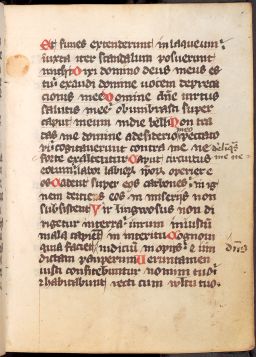 Et funes extenderunt in laqueum:
iuxta iter scandalum posuerunt
michi Dixi domino deus meus es
tu: exaudi domine uocem depreca
cionis mee Domine dn̄e uirtus
salutis mee: obumbrasti super
caput meum in die belli Non tra
das me domine a desiderio meo peccato
ri: cogitauerunt contra me ne dereliq̄s
forte exaltentur Caput circuitus me ne
eorum: labor labioꝝ ip̄oꝝ operiet e
os Cadent super eos carbones: in ig
nem deicies eos in miseriis non
subsistent Vir linguosus non di
rigetur in terra: uirum iniustū
mala capiēt in interitu Cognoui
quia faciet iudicium inopis: et uin dn̄s
dictam pauperum Ueruntamen
iusti confitebuntur nomini tuo:
et habitabunt recti cum uultu tuo.